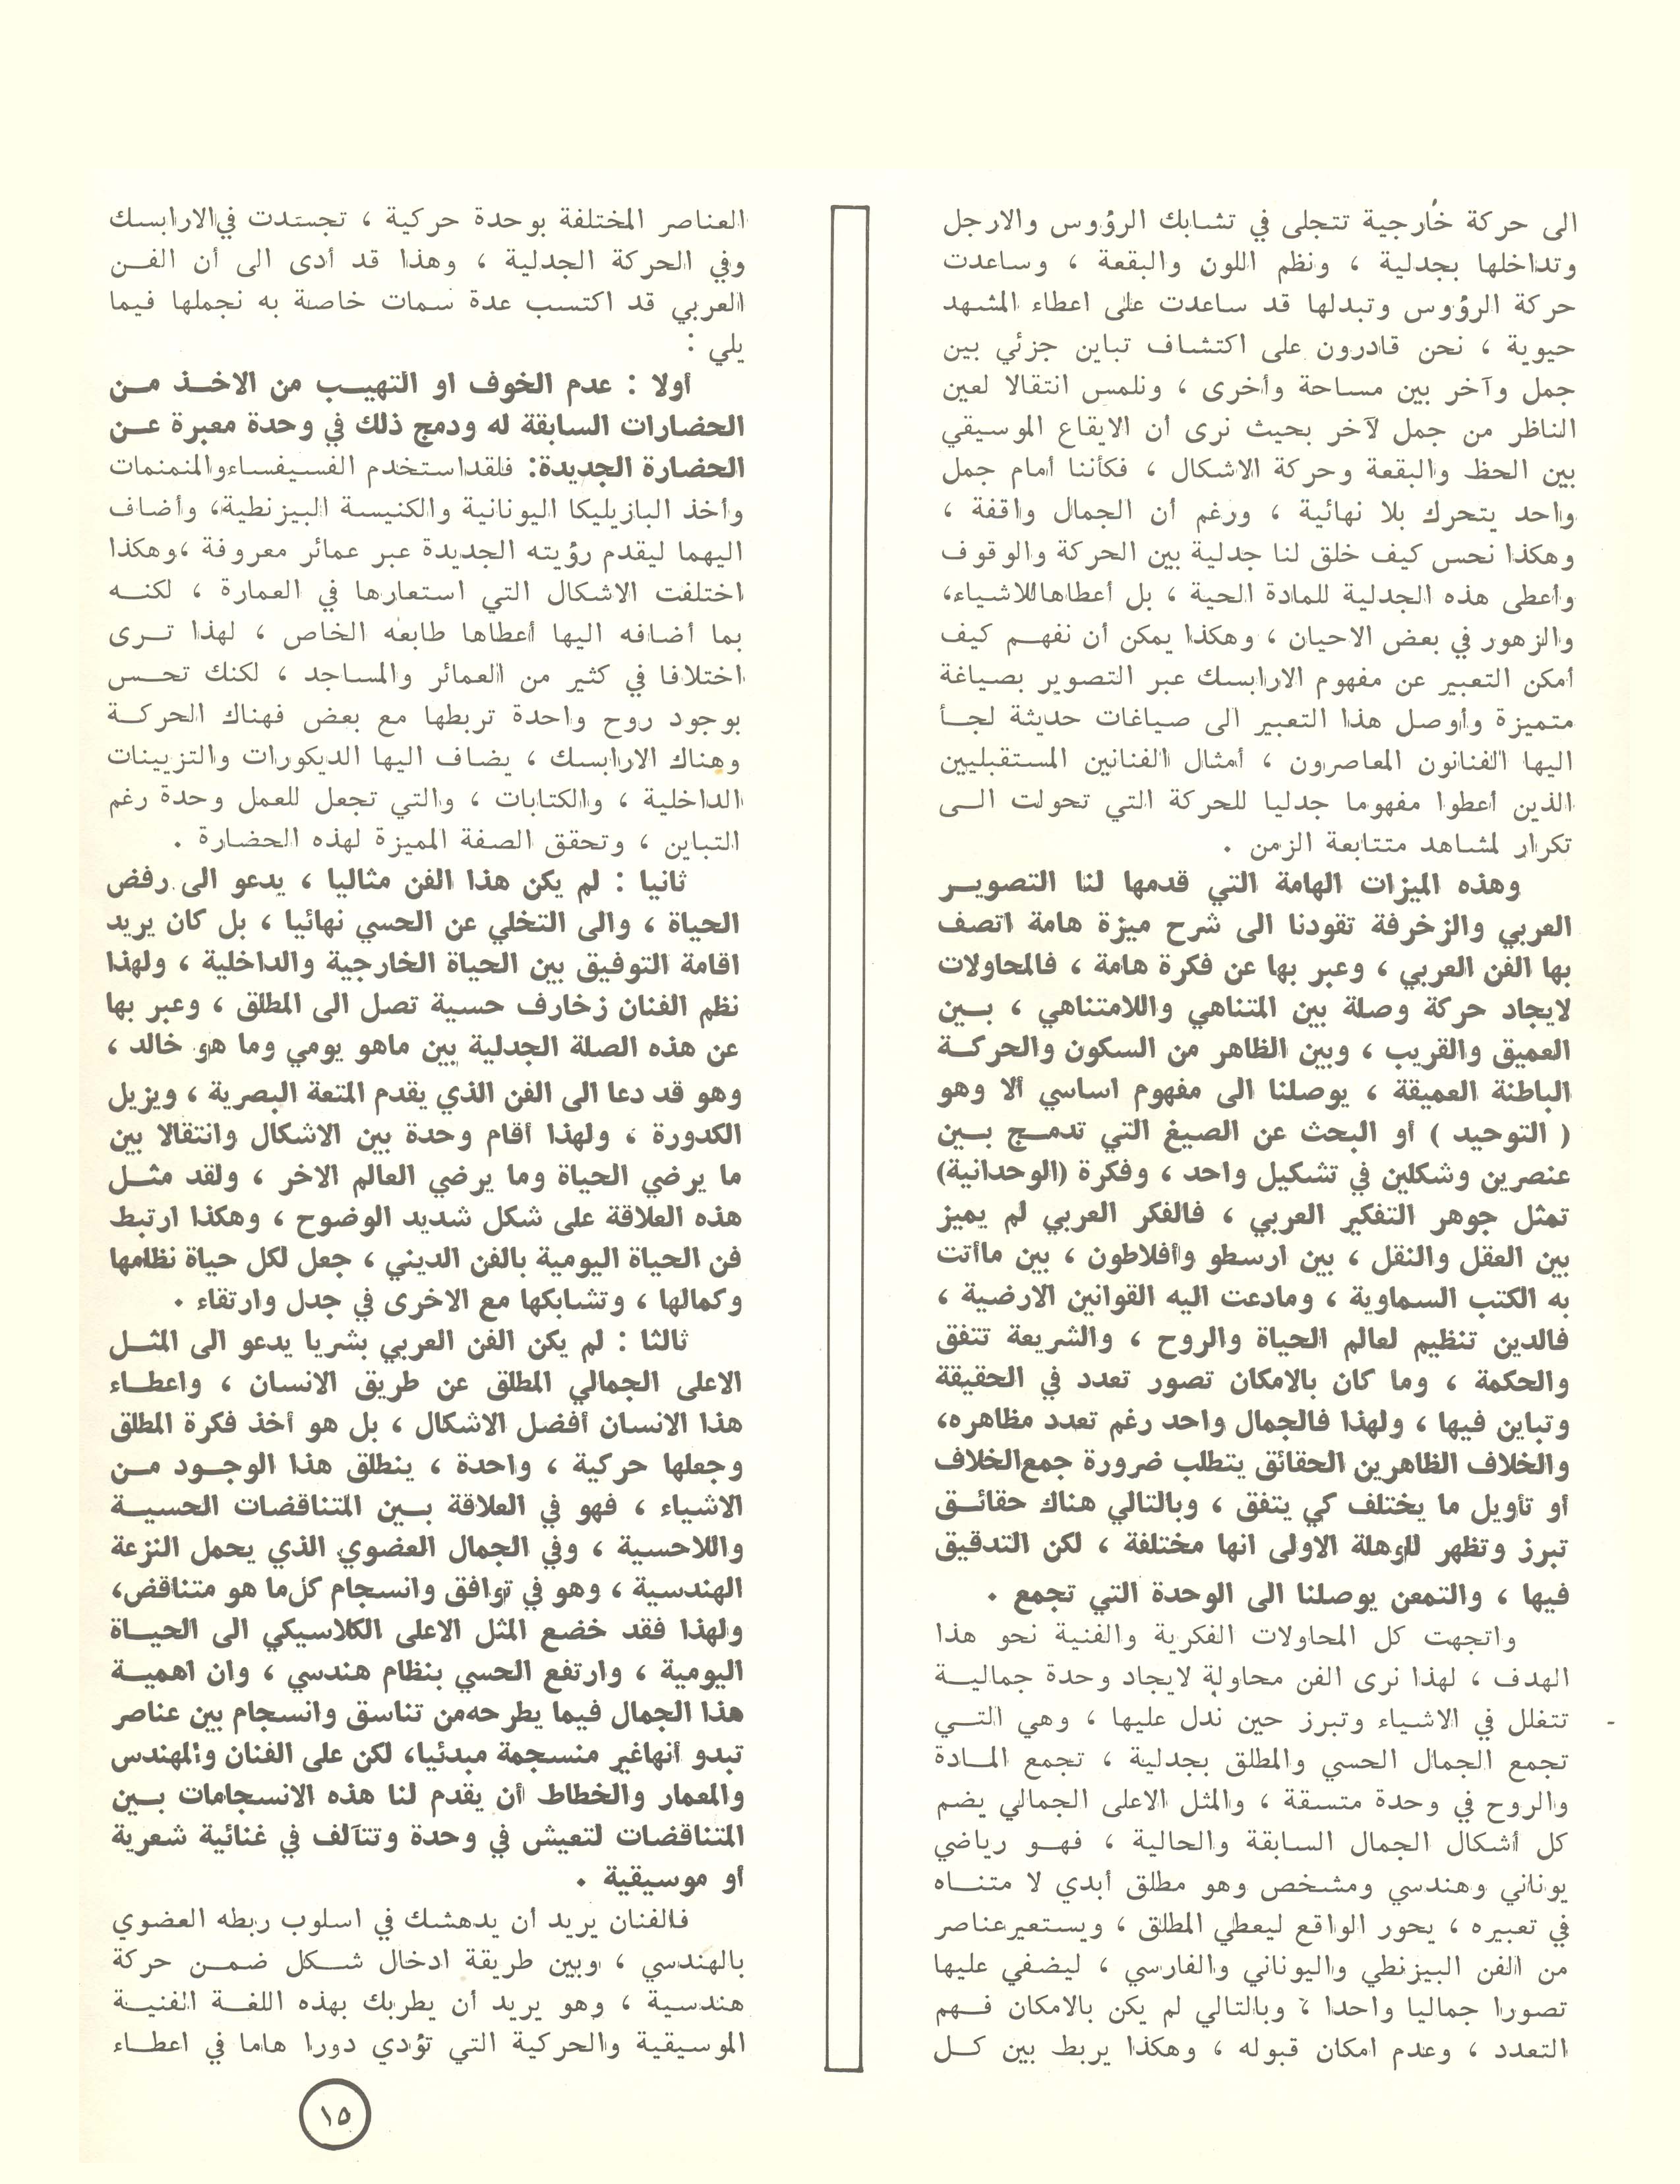 الى حركة خارجية تتجلى في تشابك الرؤوس والارجل
وتداخلها بجدلية ، ونظم اللون والبقعة ، وساعدت
حركة الرؤوس وتبدلها قد ساعدت على اعطاء المشهد
حيوية ، نحن قادرون على اكتشاف تباين جزئي بين
جمل وآخر بين مساحة وأخرى ، ونلمس انتقالا لعين
الناظر من جمل لآخر بحيث نرى أن الايقاع الموسيقي
بين الحظ والبقعة وحركة الاشكال ، فكأننا أمام جمل
واحد يتحرك بلا نهائية ، ورغم أن الجمال واقفة ،
وهكذا نحس كيف خلق لنا جدلية بين الحركة والوقوف
وأعطى هذه الجدلية للمادة الحية ، بل أعطاهاللاشياء،
والزهور في بعض الاحيان ، وهكذا يمكن أن نفهم كيف
أمكن التعبير عن مفهوم الارابسك عبر التصوير بصياغة
متميزة وأوصل هذا التعبير الى صياغات حديثة لجأ
اليها الفنانون المعاصرون ، أمثال الفنانين المستقبليين
الذين أعطوا مفهوما جدليا للحركة التي تحولت الى
تكرار لمشاهد متتابعة الزمن .
وهذه الميزات الهامة التي قدمها لنا التصوير
العربي والزخرفة تقودنا الى شرح ميزة هامة اتصف
بها الفن العربي ، وعبر بها عن فكرة هامة ، فالمحاولات
لايجاد حركة وصلة بين المتناهي واللامتناهي ، بين
العميق والقريب ، وبين الظاهر من السكون والحركة
الباطنة العميقة ، يوصلنا الى مفهوم اساسي ألا وهو
( التوحيد ) أو البحث عن الصيغ التي تدمج بين
عنصرين وشكلين في تشكيل واحد ، وفكرة (الوحدانية)
تمثل جوهر التفكير العربي ، فالفكر العربي لم يميز
بين العقل والنقل ، بين ارسطو وأفلاطون ، بين ماأتت
به الكتب السماوية ، ومادعت اليه القوانين الارضية ،
فالدين تنظيم لعالم الحياة والروح ، والشريعة تتفق
والحكمة ، وما كان بالامكان تصور تعدد في الحقيقة
وتباين فيها ، ولهذا فالجمال واحد رغم تعدد مظاهره،
والخلاف الظاهربين الحقائق يتطلب ضرورة جمع الخلاف
أو تأويل ما يختلف كي يتفق ، وبالتالي هناك حقائق
تبرز وتظهر للوهلة الاولى انها مختلفة ، لكن التدقيق
فيها ، والتمعن يوصلنا الى الوحدة التي تجمع .
واتجهت كل المحاولات الفكرية والفنية نحو هذا
الهدف ، لهذا نرى الفن محاولة لايجاد وحدة جمالية
تتغلل في الاشياء وتبرز حين ندل عليها ، وهي التي
تجمع الجمال الحسي والمطلق بجدلية ، تجمع المادة
والروح في وحدة متسقة ، والمثل الاعلى الجمالي يضم
كل أشكال الجمال السابقة والحالية ، فهو رياضي
يوناني وهندسي ومشخص وهو مطلق أبدي لا متناه
في تعبيره ، يحور الواقع ليعطي المطلق ، ويستعيرعناصر
من الفن البيزنطي واليوناني والفارسي ، ليضفي عليها
تصورا جماليا واحدا ، وبالتالي لم يكن بالامكان فهم
التعدد ، وعدم امكان قبوله ، وهكذا يربط بين كل
العناصر المختلفة بوحدة حركية ، تجسدت في الارابسك
وفي الحركة الجدلية ، وهذا قد أدى الى أن الفن
العربي قد اكتسب عدة سمات خاصة به نجملها فيما
يلي :
أولا : عدم الخوف او التهيب من الاخذ من
الحضارات السابقة له ودمج ذلك في وحدة معبرة عن
الحضارة الجديدة: فلقد استخدم الفسيفساء والمنمنمات
وأخذ البازيليكا اليونانية والكنيسة البيزنطية، وأضاف
اليهما ليقدم رؤيته الجديدة عبر عمائر معروفة ،وهكذا
اختلفت الاشكال التي استعارها في العمارة ، لكنه
بما أضافه اليها أعطاها طابعه الخاص ، لهذا ترى
اختلافا في كثير من العمائر والمساجد ، لكنك تحس
بوجود روح واحدة تربطها مع بعض فهناك الحركة
وهناك الارابسك ، يضاف اليها الديكورات والتزيينات
الداخلية ، والكتابات ، والتي تجعل للعمل وحدة رغم
التباين ، وتحقق الصفة المميزة لهذه الحضارة .
ثانيا : لم يكن هذا الفن مثاليا ، يدعو الى رفض
الحياة ، والى التخلي عن الحسي نهائيا ، بل كان يريد
اقامة التوفيق بين الحياة الخارجية والداخلية ، ولهذا
نظم الفنان زخارف حسية تصل الى المطلق ، وعبر بها
عن هذه الصلة الجدلية بين ماهو يومي وما هو خالد ،
وهو قد دعا الى الفن الذي يقدم المتعة البصرية ، ويزيل
الكدورة ، ولهذا أقام وحدة بين الاشكال وانتقالا بين
ما يرضي الحياة وما يرضي العالم الاخر ، ولقد مثل
هذه العلاقة على شكل شديد الوضوح ، وهكذا ارتبط
فن الحياة اليومية بالفن الديني ، جعل لكل حياة نظامها
وكمالها ، وتشابكها مع الاخرى في جدل وارتقاء .
ثالثا : لم يكن الفن العربي بشريا يدعو الى المثل
الاعلى الجمالي المطلق عن طريق الانسان ، واعطاء
هذا الانسان أفضل الاشكال ، بل هو أخذ فكرة المطلق
وجعلها حركية ، واحدة ، ينطلق هذا الوجود من
الاشياء ، فهو في العلاقة بين المتناقضات الحسية
واللاحسية ، وفي الجمال العضوي الذي يحمل النزعة
الهندسية ، وهو في توافق وانسجام كل ما هو متناقض،
ولهذا فقد خضع المثل الاعلى الكلاسيكي الى الحياة
اليومية ، وارتفع الحسي بنظام هندسي ، وان اهمية
هذا الجمال فيما يطرحه من تناسق وانسجام بين عناصر
تبدو أنهاغير منسجمة مبدئيا، لكن على الفنان والمهندس
والمعمار والخطاط أن يقدم لنا هذه الانسجامات بين
المتناقضات لتعيش في وحدة وتتآلف في غنائية شعرية
أو موسيقية .
فالفنان يريد أن يدهشك في اسلوب ربطه العضوي
بالهندسي ، وبين طريقة ادخال شكل ضمن حركة
هندسية ، وهو يريد أن يطربك بهذه اللغة الفنية
الموسيقية والحركية التي تؤدي دورا هاما في اعطاء
١٥